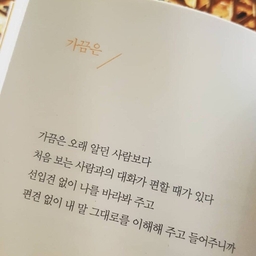 가끔은
가끔은 오래 알던 사람보다
처음 보는 사람과의 대화가 편할 때가 있다
선입견 없이 나를 바라봐 주고
편견 없이 내 말 그대로를 이해해 주고 들어주니까